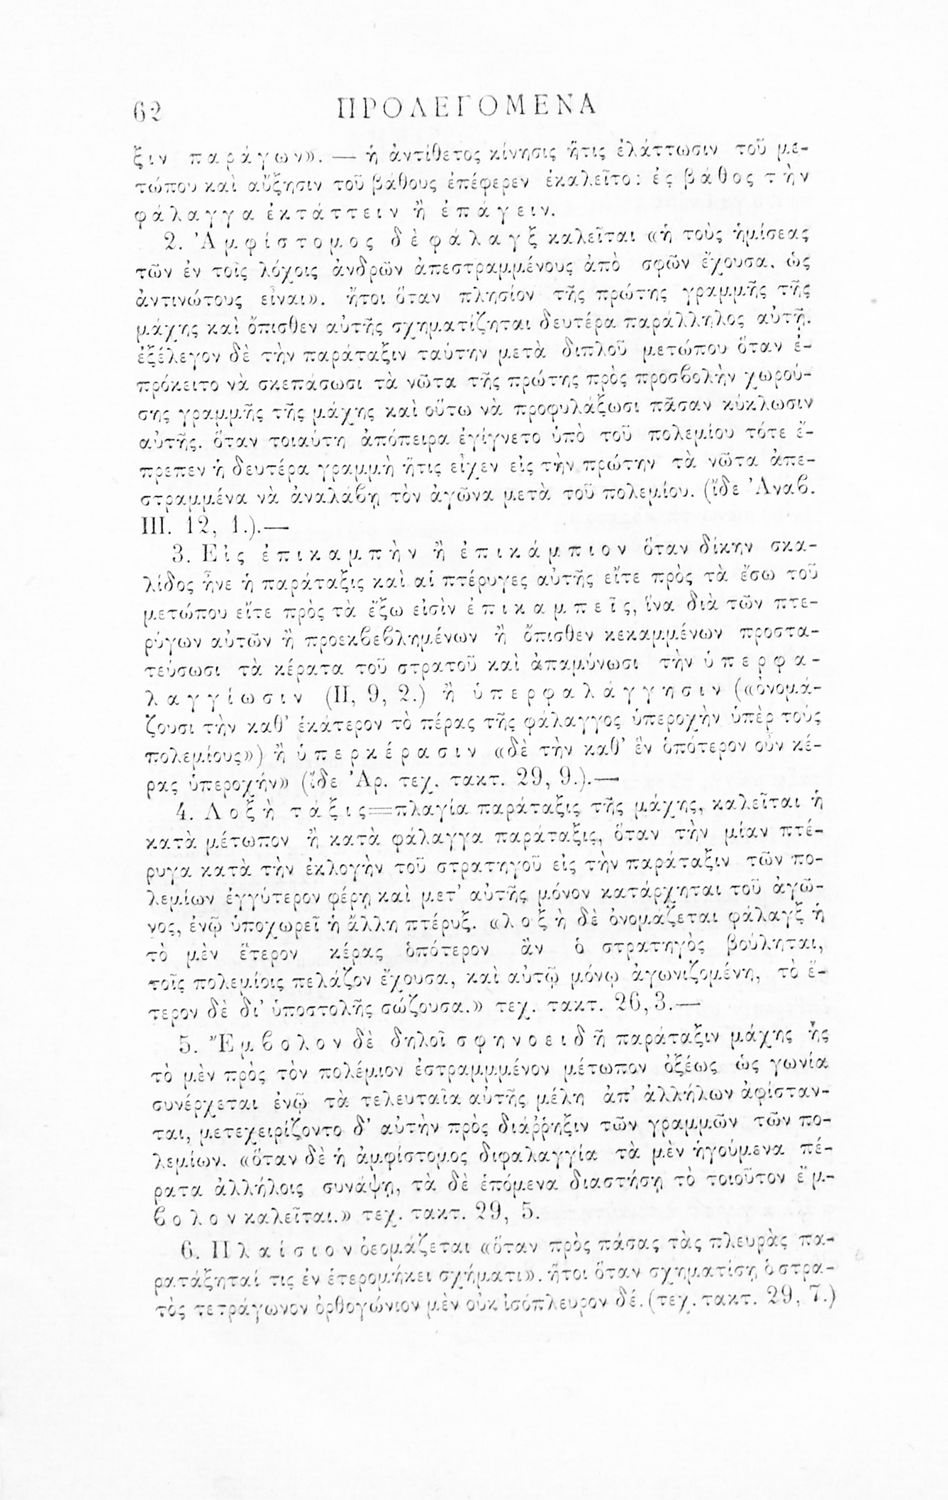 62 ΠΡΟΛΕΓΟΜΕΝΑ
ξιν παράγων». — ἡ ἀντίθετος κίνησις ἥτις ἐλάττωσιν τοῦ με-
τώπου καὶ αὔξησιν τοῦ βάθους ἐπέφερεν ἐκαλεῖτο: ἐς βάθος τὴν
φάλαγγα ἐκτάττειν ἢ ἐπάγειν.
2. Ἀμφίστομος δὲ φάλαγξ καλεῖται «ἡ τοὺς ἡμίσεας
τῶν ἐν τοῖς λόχοις ἀνδρῶν ἀπεστραμμένους ἀπὸ σφῶν ἔχουσα. ὡς
ἀντινώτους εἶναι». ἤτοι ὅταν πλησίον τῆς πρώτης γραμμῆς τῆς
μάχης καὶ ὄπισθεν αὐτῆς σχηματίζηται δευτέρα παράλληλος αὐτῇ.
ἐξέλεγον δὲ τὴν παράταξιν ταύτην μετὰ διπλοῦ μετώπου ὅταν ἐ-
πρόκειτο νὰ σκεπάσωσι τὰ νῶτα τῆς πρώτης πρὸς προσβολὴν χωρού-
σης γραμμῆς τῆς μάχης καὶ οὕτω νὰ προφυλάξωσι πᾶσαν κύκλωσιν
αὐτῆς. ὅταν τοιαύτη ἀπόπειρα ἐγίγνετο ὑπὸ τοῦ πολεμίου τότε ἔ-
πρεπεν ἡ δευτέρα γραμμὴ ἥτις εἶχεν εἰς τὴν πρώτην τὰ νῶτα ἀπε-
στραμμένα νὰ ἀναλάβῃ τὸν ἀγῶνα μετὰ τοῦ πολεμίου. (ἴδε Ἀναβ.
III. 12, 1.).—
3. Εἰς ἐπικαμπὴν ἢ ἐπικάμπιον ὅταν δίκην σκα-
λίδος ἦνε ἡ παράταξις καὶ αἱ πτέρυγες αὐτῆς εἴτε πρὸς τὰ ἔσω τοῦ
μετώπου εἴτε πρὸς τὰ ἔξω εἰσὶν ἐπικαμπεῖς, ἵνα διὰ τῶν πτε-
ρύγων αὐτῶν ἢ προεκβεβλημένων ἢ ὄπισθεν κεκαμμένων προστα-
τεύσωσι τὰ κέρατα τοῦ στρατοῦ καὶ ἀπαμύνωσι τὴν ὑπερφα-
λαγγίωσιν (II, 9, 2.) ἢ ὑπερφαλάγγησιν («ὀνομά-
ζουσι τὴν καθ’ ἑκάτερον τὸ πέρας τῆς φάλαγγος ὑπεροχὴν ὑπὲρ τοὺς
πολεμίους») ἢ ὑπερκέρασιν «δὲ τὴν καθ’ ἓν ὁπότερον οὖν κέ-
ρας ὑπεροχήν» (ἴδε Ἀρ. τεχ. τακτ. 29, 9.).—
4. Λοξὴ τάξις=πλαγία παράταξις τῆς μάχης, καλεῖται ἡ
κατὰ μέτωπον ἢ κατὰ φάλαγγα παράταξις, ὅταν τὴν μίαν πτέ-
ρυγα κατὰ τὴν ἐκλογὴν τοῦ στρατηγοῦ εἰς τὴν παράταξιν τῶν πο-
λεμίων ἐγγύτερον φέρῃ καὶ μετ’ αὐτῆς μόνον κατάρχηται τοῦ ἀγῶ-
νος, ἐνῷ ὑποχωρεῖ ἡ ἄλλη πτέρυξ. «λοξὴ δὲ ὀνομάζεται φάλαγξ ἡ
τὸ μὲν ἕτερον κέρας ὁπότερον ἂν ὁ στρατηγὸς βούληται,
τοῖς πολεμίοις πελάζον ἔχουσα, καὶ αὐτῷ μόνῳ ἀγωνιζομένη, τὸ ἕ-
τερον δὲ δι’ ὑποστολῆς σώζουσα.» τεχ. τακτ. 26,3.—
5. Ἔμβολον δὲ δηλοῖ σφηνοειδῆ παράταξιν μάχης ἧς
τὸ μὲν πρὸς τὸν πολέμιον ἐστραμμμένον μέτωπον ὀξέως ὡς γωνία
συνέρχεται ἐνῷ τὰ τελευταῖα αὐτῆς μέλη ἀπ’ ἀλλήλων ἀφίσταν-
ται, μετεχειρίζοντο δ’ αὐτὴν πρὸς διάῤῥηξιν τῶν γραμμῶν τῶν πο-
λεμίων. «ὅταν δὲ ἡ ἀμφίστομος διφαλαγγία τὰ μὲν ἡγούμενα πέ-
ρατα ἀλλήλοις συνάψῃ, τὰ δὲ ἑπόμενα διαστήσῃ τὸ τοιοῦτον ἔμ-
βολον καλεῖται.» τεχ. τακτ. 29, 5.
6. Πλαίσιον ὀεομάζεται «ὅταν πρὸς πάσας τὰς πλευρὰς πα-
ρατάξηταί τις ἐν ἑτερομήκει σχήματι». ἤτοι ὅταν σχηματίσῃ ὁ στρα-
τὸς τετράγωνον ὀρθογώνιον μὲν οὐκ ἰσόπλευρον δέ. (τεχ. τακτ. 29, 7.)